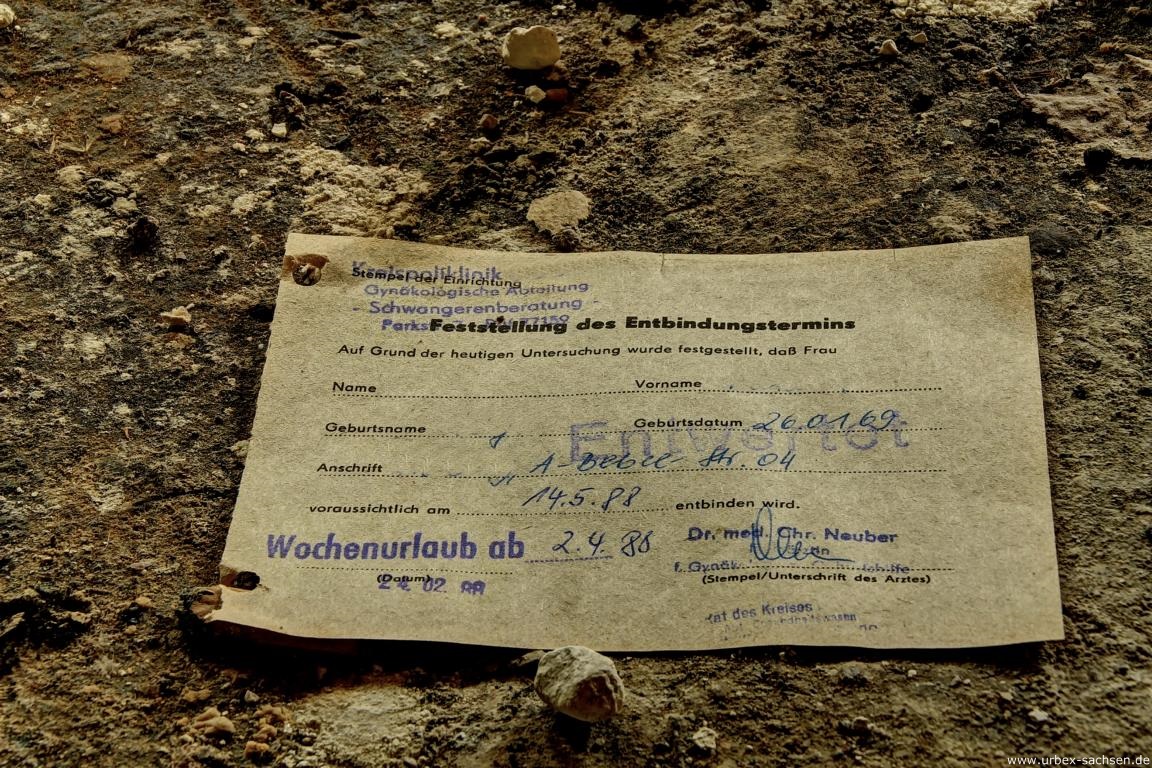 Kreispoliklinik
Stempel der Einrichtung
Gynäkologische Abteilung
- Schwangerenberatung -
Feststellung des Entbindungstermins
Auf Grund der heutigen Untersuchung wurde festgestellt, daß Frau
Name Vorname
Geburtsname Geburtsdatum 26.01.69
Entwertet
Anschrift A-Bebel Str. 04
voraussichtlich am 14.5.88 entbinden wird.
Wochenurlaub ab 2.4.88 Dr. med. Chr. Neuber
(Datum) (Stempel/Unterschrift des Arztes)
des Kreises
www.urbex-sachsen.de